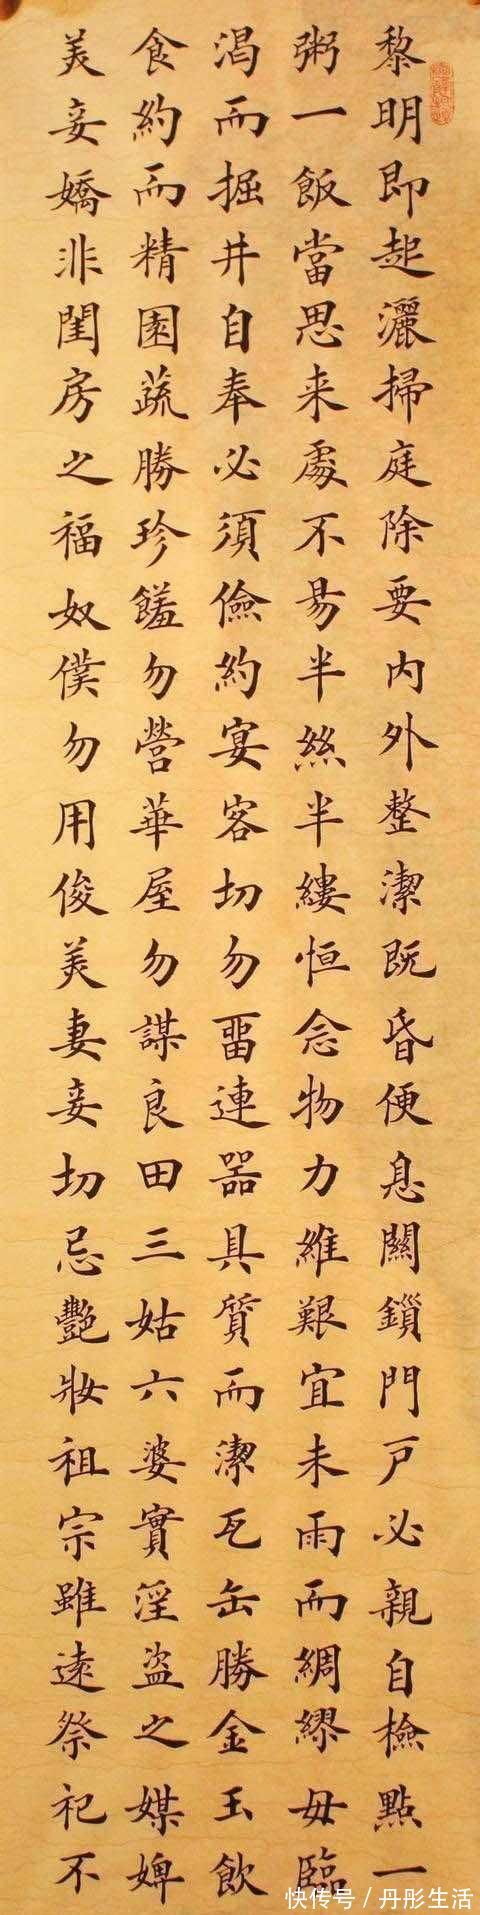 黎明即起灑掃庭除要内外整潔既昏便息關鎖門戶必親自檢點一
粥一飯當思来處不易半絲半縷恒念物力維艱宜未雨而綢繆毋臨
渴而掘井自奉必須儉約宴客切勿畱連器具質而潔瓦缶勝金玉飲
食約而精園蔬勝珍饈勿營華屋勿謀良田三姑六婆實淫盜之媒婢
美妾嬌非閨房之福奴僕勿用俊美妻妾切忌艷妝祖宗雖遠祭祀不
快传号/丹彤生活